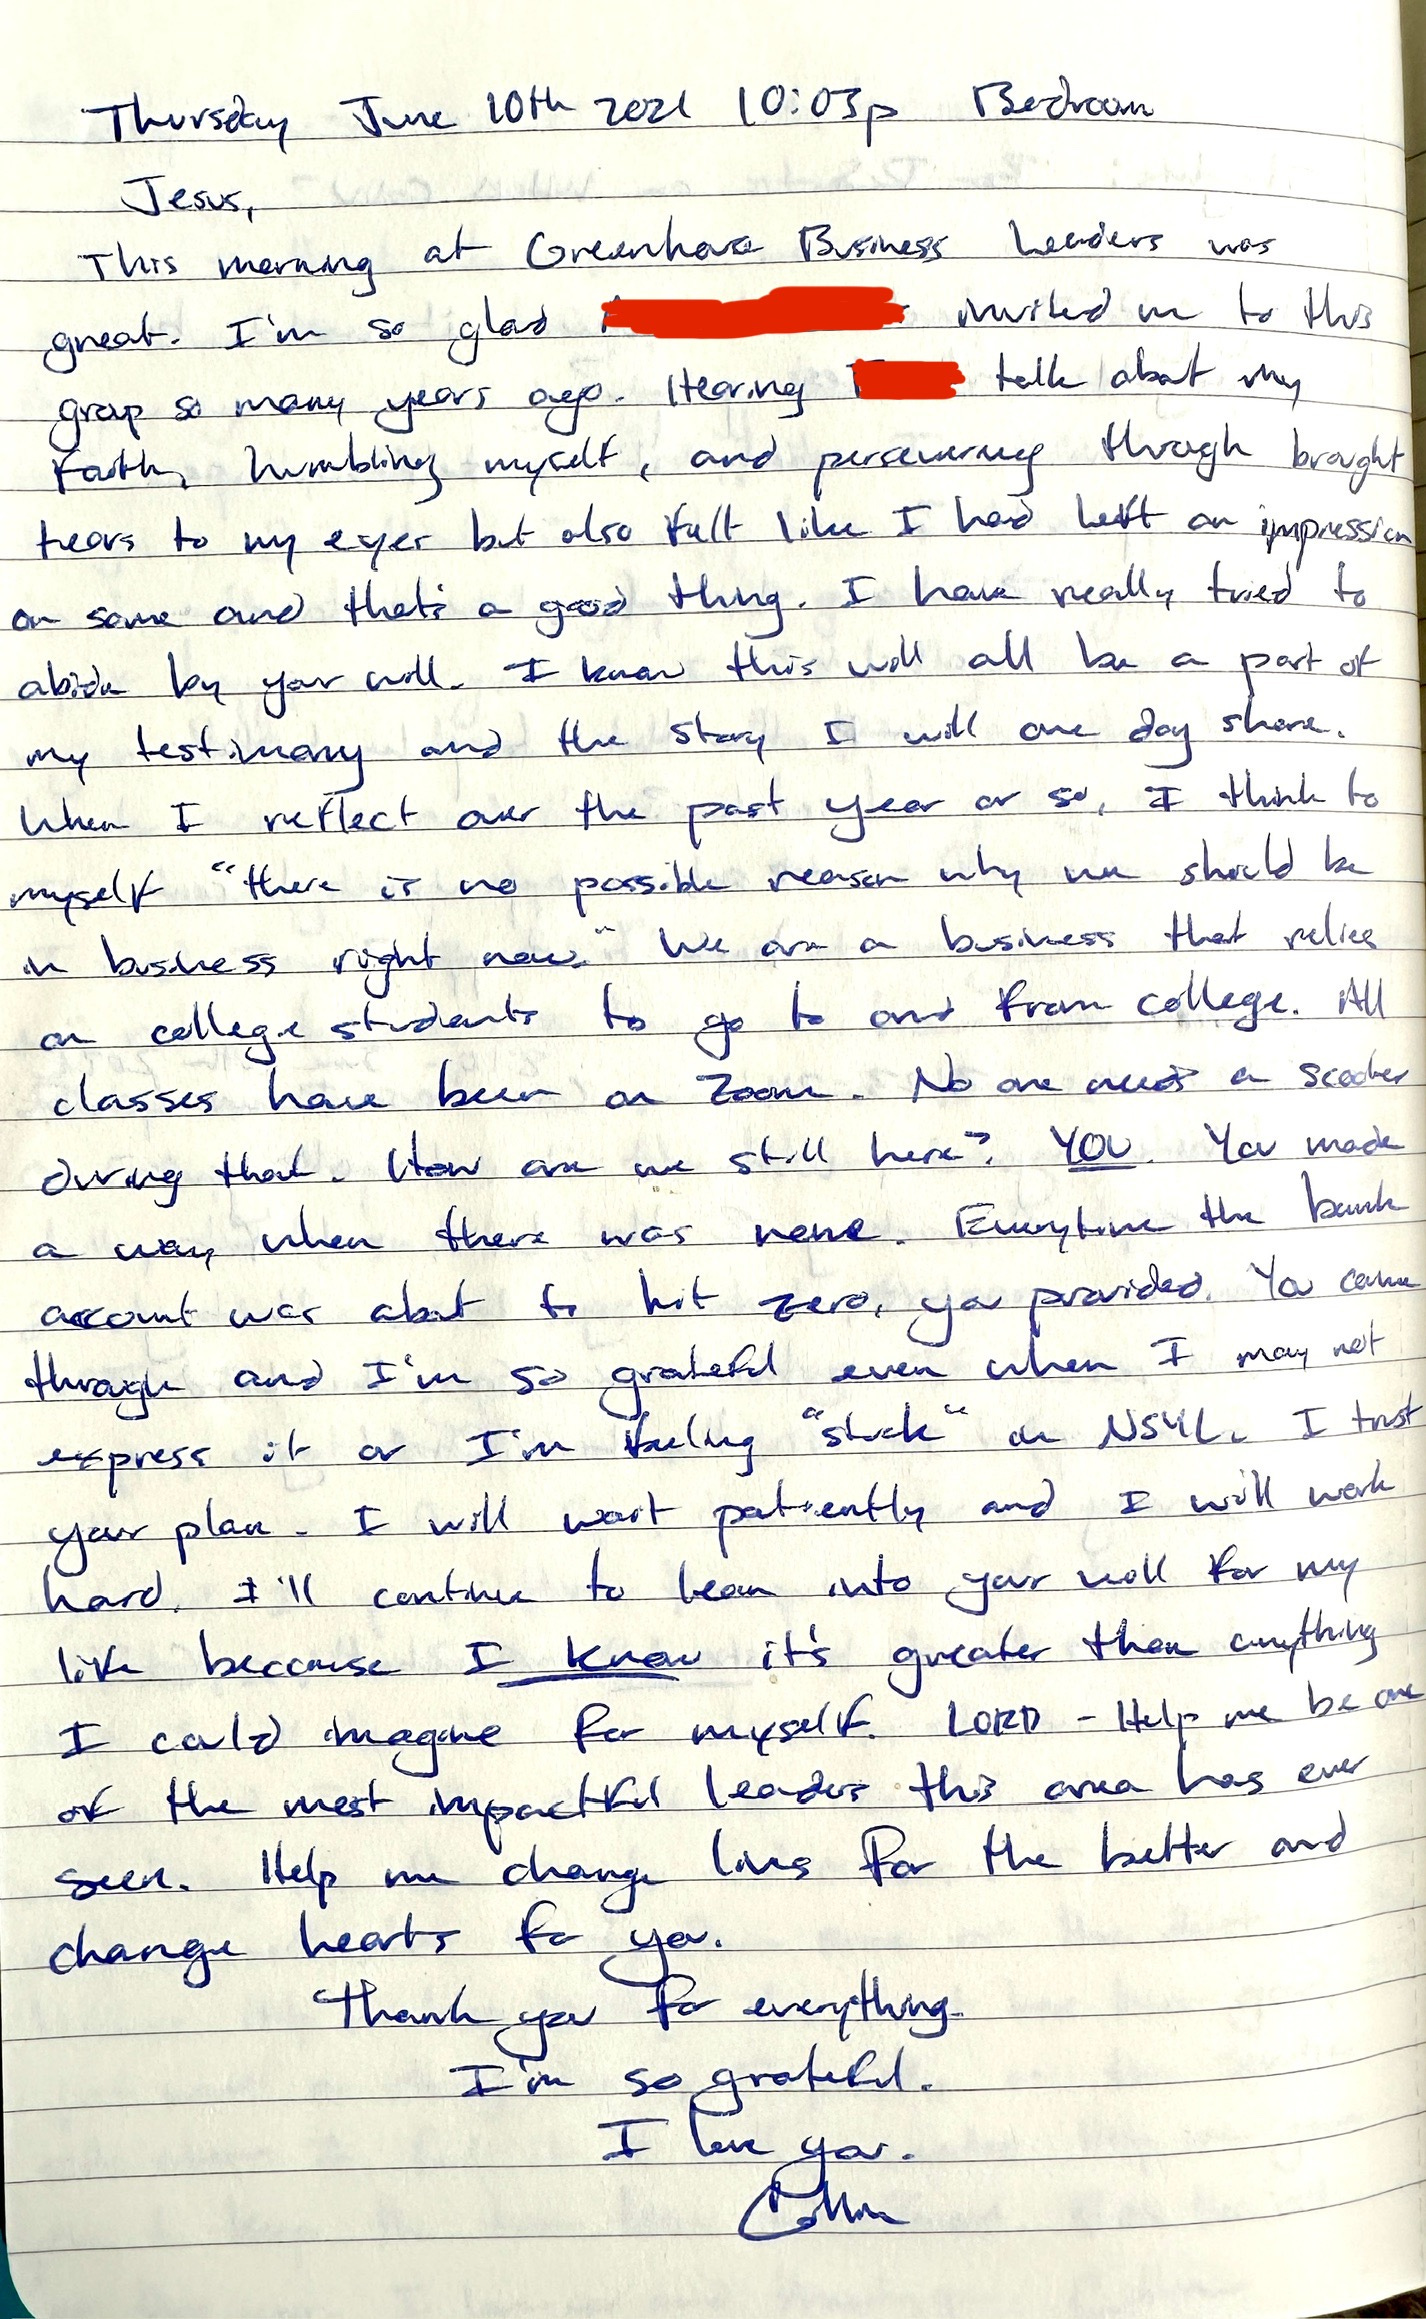 Thursday June 10th 2021 10:03p Bedroom
Jesus,
This morning at Greenhouse Business Leaders was
great. I'm so glad invited me to this
group so many years ago. Hearing talk about my
faith, humbling myself, and persevering through brought
tears to my eyes but also felt like I had left an impression
on some and that's a good thing. I have really tried to
abide by your will. I know this will all be a part of
my testimony and the story I will one day share.
When I reflect over the past year or so, I think to
myself "there is no possible reason why we should be
in business right now." We are a business that relies
on college students to go to and from college. All
classes have been on Zoom. No one needs a scooter
during that. How are we still here? YOU. You made
a way when there was none. Everytime the bank
account was about to hit zero, you provided. You came
through and I'm so grateful even when I may not
express it or I'm feeling "stuck" in NSYL. I trust
your plan. I will wait patiently and I will work
hard. I'll continue to lean into your will for my
life because I know it's greater than anything
I could imagine for myself. LORD - Help me be one
of the most impactful leaders this area has ever
seen. Help me change lives for the better and
change hearts for you.
Thank you for everything.
I'm so grateful.
I love you.
Collin